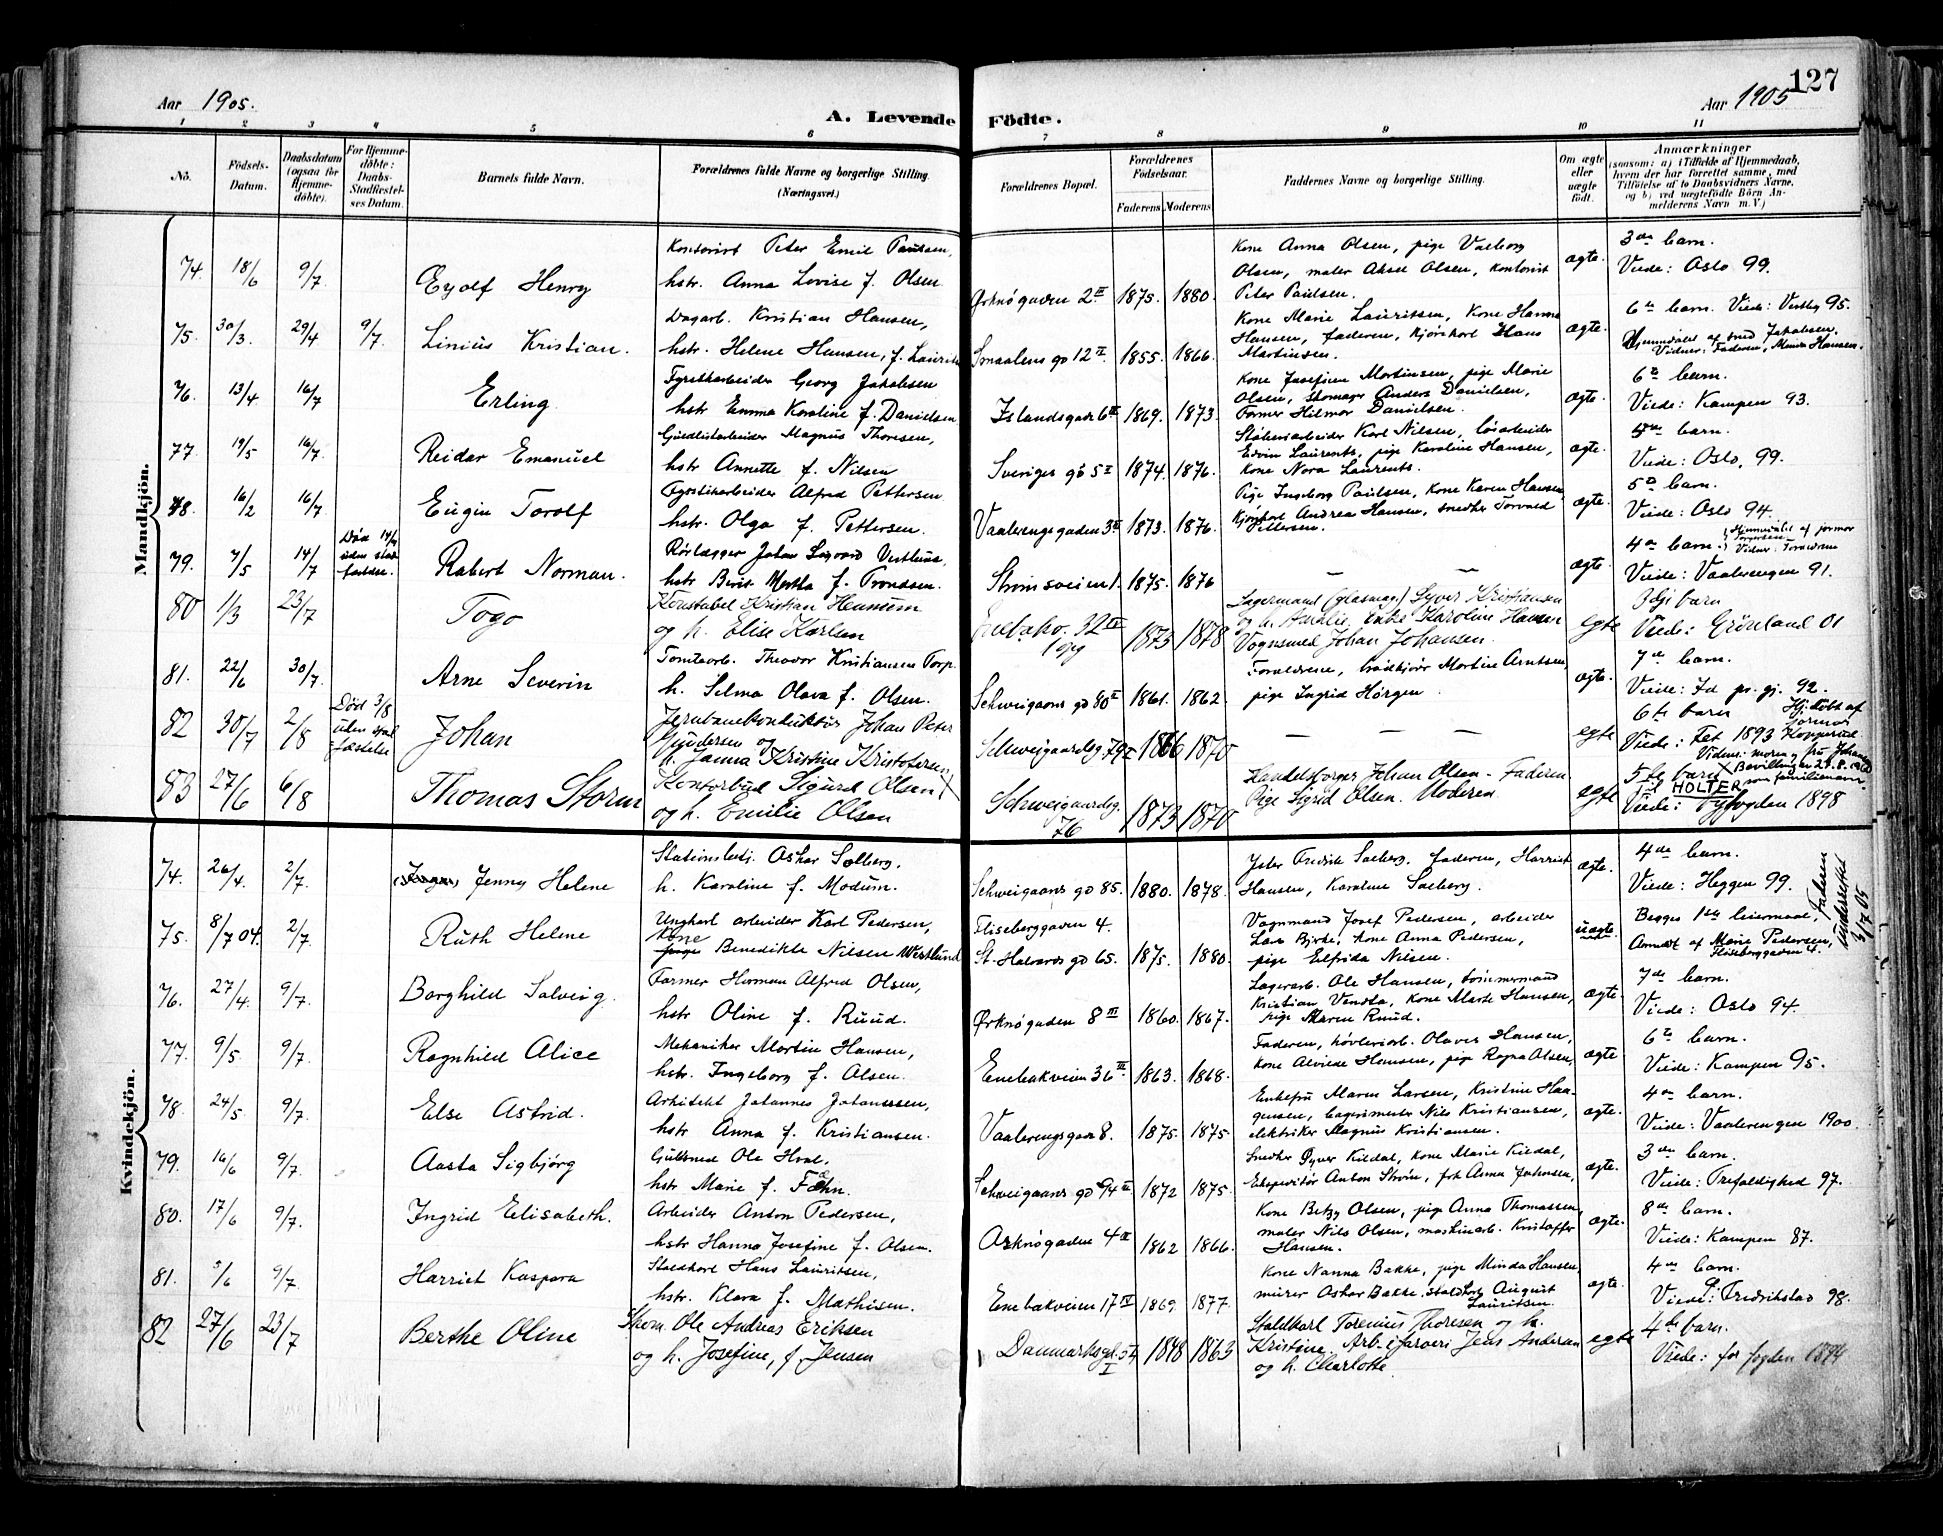 127
Aar 1905.
A. Levende Födte.
Aar 1905
1 2 3 4 5 6 7 8 9 10 11
No.
Födsels-Datum.
Daabsdatum (ogsaa for Hjemme-döbte).
For Hjemme-döbte: Daabs-Stadfæstel-ses Datum.
Barnets fulde Navn.
Forældrenes fulde Navne og borgerlige Stilling. (Næringsvei.)
Forældrenes Bopæl.
Forældrenes Födselsaar.
Faderens. Moderens.
Faddernes Navne og borgerlige Stilling.
Om ægte eller uægte födt.
Anmærkninger
(saasom: a) i Tilfælde af Hjemmedaab, hvem der har forrettet samme, med Tilföielse af to Daabsvidners Navne, og b) ved uægtefödte Börn An-melderens Navn m. V.)
Mandkjön.
74. 18/6 9/7 Eyolf Henry
Kontorist Peter Emil Paulsen,
hstr. Anna Lovise f. Olsen
Ørknögaden 2 II 1875. 1880.
Kone Anna Olsen, pige Valborg
Olsen, maler Aksel Olsen, kontorist
Peter Paulsen.
ægte.
3de barn.
Viede: Oslo 99.
75. 30/3 29/4 9/7 Linius Kristian.
Dagarb. Kristian Hansen,
hstr. Helene Hansen, f. Laurits
Smaalens gd 12 II 1855. 1866.
Kone Marie Lauritsen, Kone Hanna
Hansen, faderen, Kjörekarl Hans
Martinsen.
ægte.
6te barn. Viede: Vestby 95.
Vidner: Faderen, Minda Hansen.
76. 13/4 16/7 Erling
Fyrstikarbeider Georg Jakobsen
hstr Emma Karoline f. Danielsen
Islandsgade 6 II 1869. 1873.
Kone Josefine Mortinsen, pige Marie
Olsen, Skomager Anders Danielsen,
Former Hilmar Danielsen.
ægte.
6te barn.
Viede: Kampen 93.
77. 19/5 16/7 Reidar Emanuel
Guldlistarbeider Magnus Thoresen,
hstr Annette f. Nilsen
Sveriges gd 5 I 1874. 1876.
Støberiarbeider Karl Nilsen, løsarbeider
Edvin Laurents, pige Karoline Hansen,
Kone Nora Laurents.
ægte.
5te barn.
Viede: Oslo, 99.
78. 16/2 16/7 Eugin Torolf
Fyrstikarbeider Alfred Pettersen
hstr. Olga f. Pettersen.
Vaalerengsgaden 3 II 1873. 1876.
Pige Ingeborg Paulsen, Kone Karen Hansen
Kjörekarl Andrea Hansen, snedker Torvald
Pettersen.
ægte.
5te barn.
Viede: Oslo 94.
79. 7/5 14/7
Död 14/7 uden stad-fæstelse.
Robert Norman.
Rörlægger Johan Sigvard Vestlund,
hstr Berit Martha f. Trondsen.
Strömsveien 1. 1875. 1876
— —
ægte.
4de barn. Hjemmedöbt af jormor
Vidner: Forældrene
Viede: Vaalerengen 91.
80 1/3 23/7 Togo
Konstabel Kristian Hensum
og h. Elise Karlsen
32 IV opg 1873 1878
Lagermand (Glasmag.) Syver Kristiansen
og h. Amalie, Enke Karoline Hansen
Vognmand Johan Johansen.
egte
3dje barn
Viede: Grönland 01
81. 22/6 30/7 Arne Severin
Tomtearb. Theodor Kristiansen Torp
h. Selma Olava f. Olsen.
Schweigaards gd 80 II 1861. 1862.
Forældrene, Martine Arntsen
pige Ingrid Hörgen
ægte.
7de barn.
Viede: Id pr. gj. 92.
82 30/7 2/8
Död 3/8 uden stad-fæstelse
Johan
Jernbanekonduktör Johan Peter
Gundersen og
h. Janna Kristine Kristofersen
Schweigaardsg. 79 I 1866 1870
— — —
egte
6te barn Hj.döbt af
Jormor Kopperud.
Viede: Fet 1893
83 27/6 6/8 Thomas Storm
Kontorbud Sigurd Olsen X
og h. Emilie Olsen
Schweigaardsg. 76 1873 1870
Handelsborger Johan Olsen - Faderen
Pige Sigrid Olsen. Moderen
egte
5te barn X Bevilling
til HOLTER som familienavn.
Viede: Tyfogden 1898
Kvindekjön.
74. 26/4. 2/7. Jenny Helene
Stationsbetj. Oskar Solberg.
h. Karoline f. Modum.
Schweigaards gd 85. 1880. 1878.
Fredrik Solberg. faderen, Harriet
Hansen, Karoline Solberg.
ægte.
4de barn.
Viede: Heggen 99.
75. 8/7 04. 2/7. Ruth Helene
Ungkarl arbeider Karl Pedersen,
Kone Benedikte Nilsen Westlund
Eliseberggaden 4.
St. Halvards gd 65. 1875. 1880.
Vognmand Josef Pedersen, arbeider
Lars Bjerke, Kone Anna Pedersen,
pige Elfrida Nilsen.
uægte.
Begges 1ste leiermaal,
Anmeldt af Marie Pedersen,
Eliseberggaden 4.
Faderen underrettet 3/7 05
76. 27/4. 9/7 Borghild Solveig.
Former Herman Alfred Olsen,
hstr Oline f. Ruud.
Ørknögaden 8 III 1860. 1867.
Lagerarb. Ole Hansen, tömmermand
Kristian Vendta, Kone Marte Hansen,
pige Maren Ruud.
ægte.
7de barn.
Viede: Oslo 94.
77. 9/5 9/7. Ragnhild Alice
Mekaniker Martin Hansen,
hstr. Ingeborg f. Olsen.
Enebakveien 36 III 1863. 1868.
Faderen, høvleriarb. Olaves Hansen,
Kone Alvilde Hansen, pige Ragna Olsen,
ægte.
6te barn.
Viede: Kampen 95.
78. 24/5 9/7. Else Astrid.
Arkitekt Johannes Johannessen,
hstr Anna f. Kristiansen.
Vaalerengsgade 8. 1875. 1875.
Enkefru Maren Larsen, Kristine Haa-
gensen, bagermester Nils Kristiansen,
elektriker Magnus Kristiansen.
ægte.
4de barn.
Viede: Vaalerengen 1900.
79. 16/6 9/7. Aasta Sigbjörg
Guldsmed Ole Hval.
hstr. Marie f. Fæhn.
Schweigaards gd 94 II 1872 1875.
Snedker Syver Kildal, Kone Marie Kildal,
Ekspeditör Anton Ström, frk Anna Johnsen,
ægte.
3die barn.
Viede: Trefoldighed 97.
80. 17/6 9/7. Ingrid Elisabeth.
Arbeider Anton Pedersen,
hstr Hanna Josefine f. Olsen.
Ørknögaden 4 II 1862 1866.
Kone Betzy Olsen, pige Anna Thomassen
maler Nils Olsen, maskinarb. Kristoffer
Hansen.
ægte.
8de barn.
Viede: Kampen 87.
81. 5/6 9/7. Harriet Kaspara
Staldkarl Hans Lauritsen,
hstr. Klara f. Mathisen.
Enebakveien 17 IV 1869. 1877.
Kone Nanna Bakke, pige Minda Hansen,
murer Oskar Bakke. staldkarl August
Lauritsen.
ægte.
4de barn.
Viede: Fredrikstad 98.
82 27/6 23/7 Berthe Oline
Skom. Ole Andreas Eriksen
og h. Josefine, f. Jensen
Danmarksgd. 54 I 1848 1863
Staldkarl Torenius Thoresen og h.
Kristine. Arb. i farveri Jens Andersen
og h. Charlotte.
egte
4de barn.
Viede: for fogden 1894